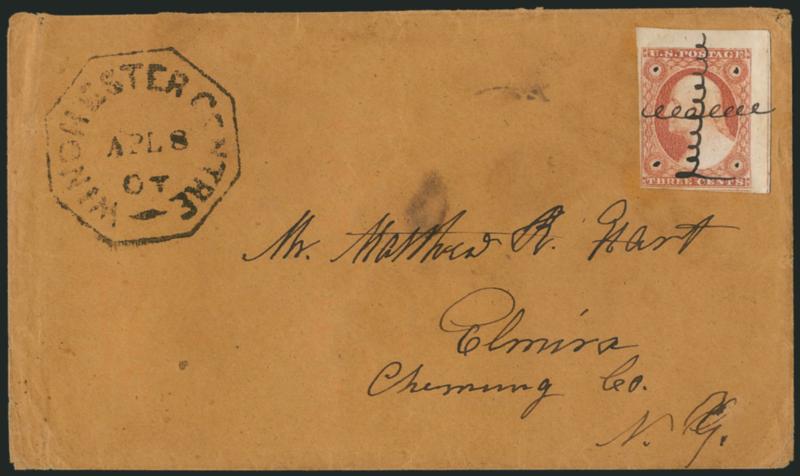 WINCHESTER CENTRE
APL 8
CT
U.S. POSTAGE
THREE CENTS
Mr. Matthew R. Hart
Elmira
Chemung Co.
N. Y.